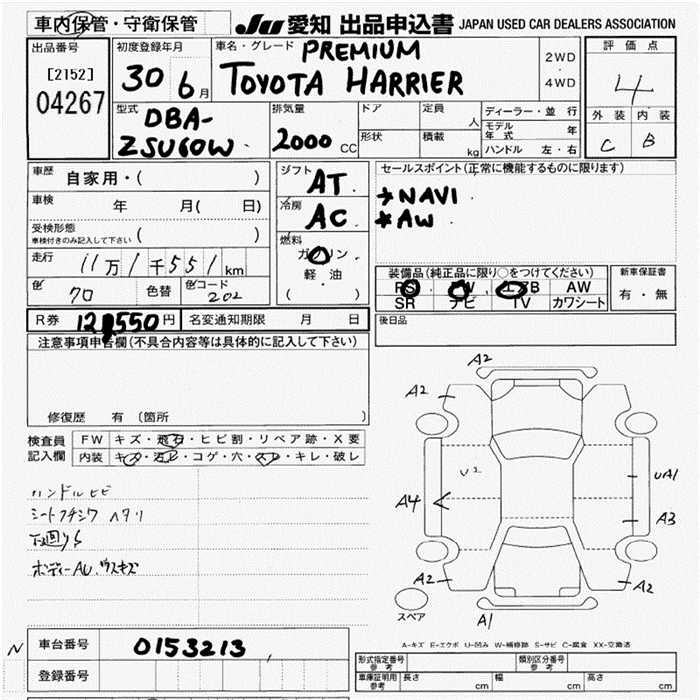 車内保管・守衛保管
JU 愛知 出品申込書 JAPAN USED CAR DEALERS ASSOCIATION
出品番号
[2152]
04267
初度登録年月
30 6月
車名・グレード PREMIUM
TOYOTA HARRIER
2WD
・
4WD
評価点
4
外装 内装
C B
型式
DBA-
ZSU60W
排気量
2000 CC
ドア
形状
定員
人
積載
kg
ディーラー・並行
モデル年式 年
ハンドル 左・右
車歴 自家用・( )
車検 年 月( 日)
受検形態
車検付きのみ記入して下さい ( )
走行 11万1千551km
色 70 色替 色コード 202
シフト AT
冷房 AC
燃料
ガソリン
・
軽・油
( )
セールスポイント(正常に機能するものに限ります)
→NAVI
★AW
装備品(純正品に限り○をつけてください)
PS PW エアB AW
SR ナビ TV カワシート
新車保証書
有・無
R券 12,550円 名変通知期限 月 日
後日品
注意事項申告欄(不具合内容等は具体的に記入して下さい)
修復歴 有 (箇所
検査員
記入欄
FW キズ・飛石・ヒビ割・リペア跡・X要
内装 キズ・汚レ・コゲ・穴・スレ・キレ・破レ
ハンドルヒビ
シートフチシワ ヘタリ
下廻りS
ボディーAU.ウスキズ
A2
A2
U2
UA1
A4
A3
A2
A2
A1
スペア
A-キズ E-エクボ U-凹み W-補修跡 S-サビ C-腐食 XX-交換済
N 車台番号 0153213
登録番号
形式指定番号
参考
類別区分番号
参考
車庫証明用
参考
長さ cm 幅 cm 高さ cm